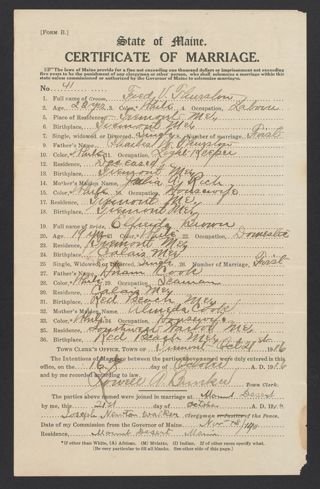 [FORM B.]
State of Maine.
CERTIFICATE OF MARRIAGE.
The laws of Maine provide for a fine not exceeding one thousand dollars or imprisonment not exceeding
five years to be the punishment of any clergyman or other person, who shall solemnize a marriage within this
state unless commissioned or authorized by the Governor of Maine to solemnize marriages.
No. 41
1. Full name of Groom, Fred V. Thurston
2. Age, 28 yrs 3. Color, White 4. Occupation, Laborer
5. Place of Residence, Tremont Me
6. Birthplace, Tremont Me
7. Single, widowed or Divorced, Single 8. Number of marriage, First
9. Father's Name, Charles Thurston
10. Color, White 11. Occupation, Light Keeper
12. Residence, Deceased
13. Birthplace, Tremont Me
14. Mother's Maiden Name, Rich
15. Color, White 16. Occupation, Housewife
17. Residence, Tremont Me
18. Birthplace, Tremont Me
19. Full name of Bride, Elfreda Brown
20. Age, 21. Color, White 22. Occupation, Domestic
23. Residence, Tremont Me
24. Birthplace, Calais Me
25. Single, Widowed or Divorced, Single 26. Number of Marriage, First
27. Father's Name, Hiram Cook
28. Color, White 29. Occupation, Seaman
30. Residence, Calais Me
31. Birthplace, Red Beach Me
32. Mother's Maiden Name, Cook
33. Color, White 34. Occupation, Housewife
35. Residence, Southwest Harbor Me
36. Birthplace, Red Beach Me
TOWN CLERK'S OFFICE, TOWN OF Tremont Oct 21st 1916
The Intentions of Marriage between the parties above named were duly entered in this
office, on the day of October A. D. 1916
and by me recorded according to law.
Town Clerk.
The parties above named were joined in marriage at Mount Desert
by me, this 21st day of October A. D. 1916
Joseph Newton Walker Clergyman
Date of my Commission from the Governor of Maine, Nov
Residence, Mount Desert Maine
If other than White, (A) African. (M) Mulatto. (I) Indian. If of other races specify what.
[Be very particular to fill all blanks. See other side of this page.]